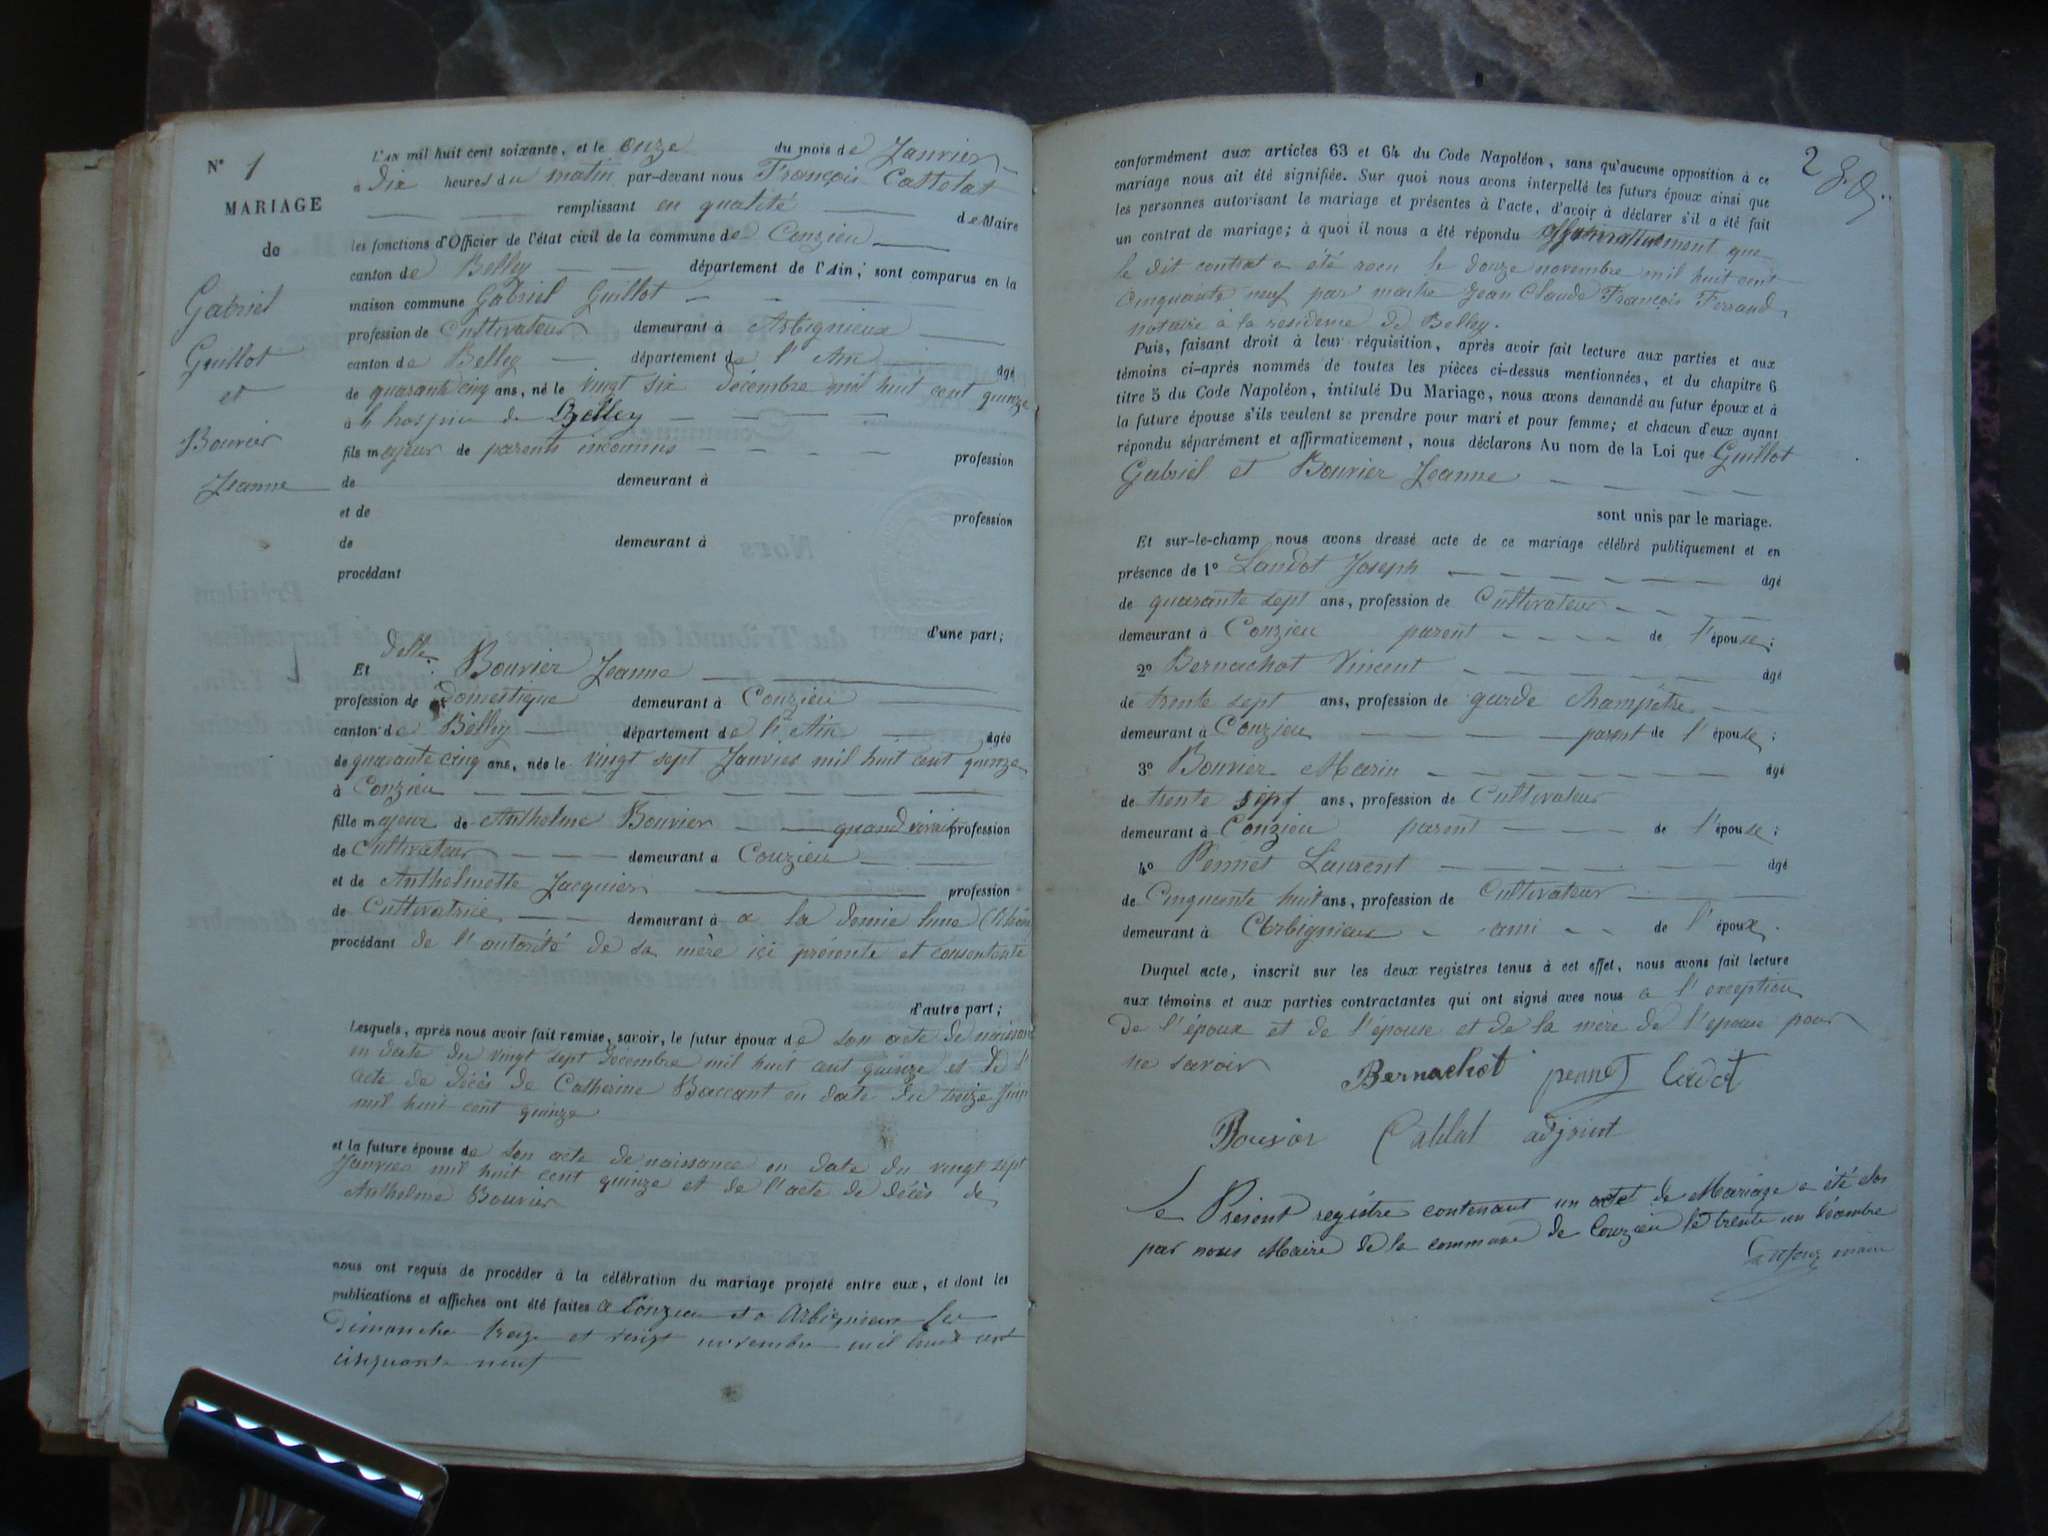 N° 1
MARIAGE
de
Gabriel
Guillot
et
Bouvier
Jeanne
L'AN mil huit cent soixante, et le onze du mois de Janvier
à Dix heures du matin par-devant nous François Cattelat
remplissant en qualité de Maire
les fonctions d'Officier de l'état civil de la commune de Conzieu
canton de Belley département de l'Ain; sont comparus en la
maison commune Gabriel Guillot
profession de Cultivateur demeurant à Arbignieux
canton de Belley département de l'Ain âgé
de quarante cinq ans, né le vingt six Décembre mil huit cent quinze
à l'hospice de Belley
fils majeur de parents inconnus profession
de demeurant à
et de profession
de demeurant à
procédant
d'une part;
Et delle Bouvier Jeanne
profession de Domestique demeurant à Conzieu
canton de Belley département de l'Ain âgée
de quarante cinq ans, née le vingt sept Janvier mil huit cent quinze
à Conzieu
fille majeure de Anthelme Bouvier quand vivait profession
de Cultivateur demeurant à Conzieu
et de Anthelmette Jacquier profession
de Cultivatrice demeurant à a la
procédant de l'autorité de sa mère içi présente et consentante
d'autre part;
Lesquels, après nous avoir fait remise, savoir, le futur époux de son acte de naissance
en date du vingt sept Décembre mil huit cent quinze et de l'
acte de décès de Catherine en date du treize Juin
mil huit cent quinze
et la future épouse de son acte de naissance en date du vingt sept
Janvier mil huit cent quinze et de l'acte de décès de
Anthelme Bouvier
nous ont requis de procéder à la célébration du mariage projeté entre eux, et dont les
publications et affiches ont été faites a Conzieu et a Arbignieux les
Dimanche treize et vingt novembre mil huit cent
cinquante neuf
2
conformément aux articles 63 et 64 du Code Napoléon, sans qu'aucune opposition à ce
mariage nous ait été signifiée. Sur quoi nous avons interpellé les futurs époux ainsi que
les personnes autorisant le mariage et présentes à l'acte, d'avoir à déclarer s'il a été fait
un contrat de mariage; à quoi il nous a été répondu affirmativement que
le dit contrat a été recu le douze novembre mil huit cent
Cinquante neuf par maitre Jean Claude François Ferrand
notaire à la residence de Belley.
Puis, faisant droit à leur réquisition, après avoir fait lecture aux parties et aux
témoins ci-après nommés de toutes les pièces ci-dessus mentionnées, et du chapitre 6
titre 5 du Code Napoléon, intitulé Du Mariage, nous avons demandé au futur époux et à
la future épouse s'ils veulent se prendre pour mari et pour femme; et chacun d'eux ayant
répondu séparément et affirmativement, nous déclarons Au nom de la Loi que Guillot
Gabriel et Bouvier Jeanne
sont unis par le mariage.
Et sur-le-champ nous avons dressé acte de ce mariage célébré publiquement et en
présence de 1° Landot Joseph âgé
de quarante sept ans, profession de Cultivateur
demeurant à Conzieu parent de l'épouse;
2° Bernachot Vincent âgé
de trente sept ans, profession de garde Champêtre
demeurant à Conzieu parent de l'épouse;
3° Bouvier Marin âgé
de trente sept ans, profession de Cultivateur
demeurant à Conzieu parent de l'épouse;
4° Pennet Laurent âgé
de Cinquante huit ans, profession de Cultivateur
demeurant à Arbignieux ami de l'époux.
Duquel acte, inscrit sur les deux registres tenus à cet effet, nous avons fait lecture
aux témoins et aux parties contractantes qui ont signé avec nous a l'exception
De l'époux et de l'épouse et de la mère de l'epouse pour
ne savoir
Bernachot pennet
Bouvier Cattelat adjoint
Le Présent registre contenant un acte de Mariage a été clos
par nous Maire de la commune de Conzieu le trente un Décembre
maire